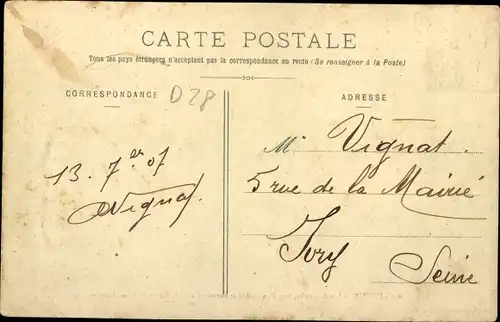 CARTE POSTALE
Tous les pays étrangers n'acceptent pas la correspondance au recto (Se renseigner à la Poste)
CORRESPONDANCE
D28
ADRESSE
13. 7bre 07
Vignat
M. Vignat.
5 rue de la Mairie
Ivry
Seine